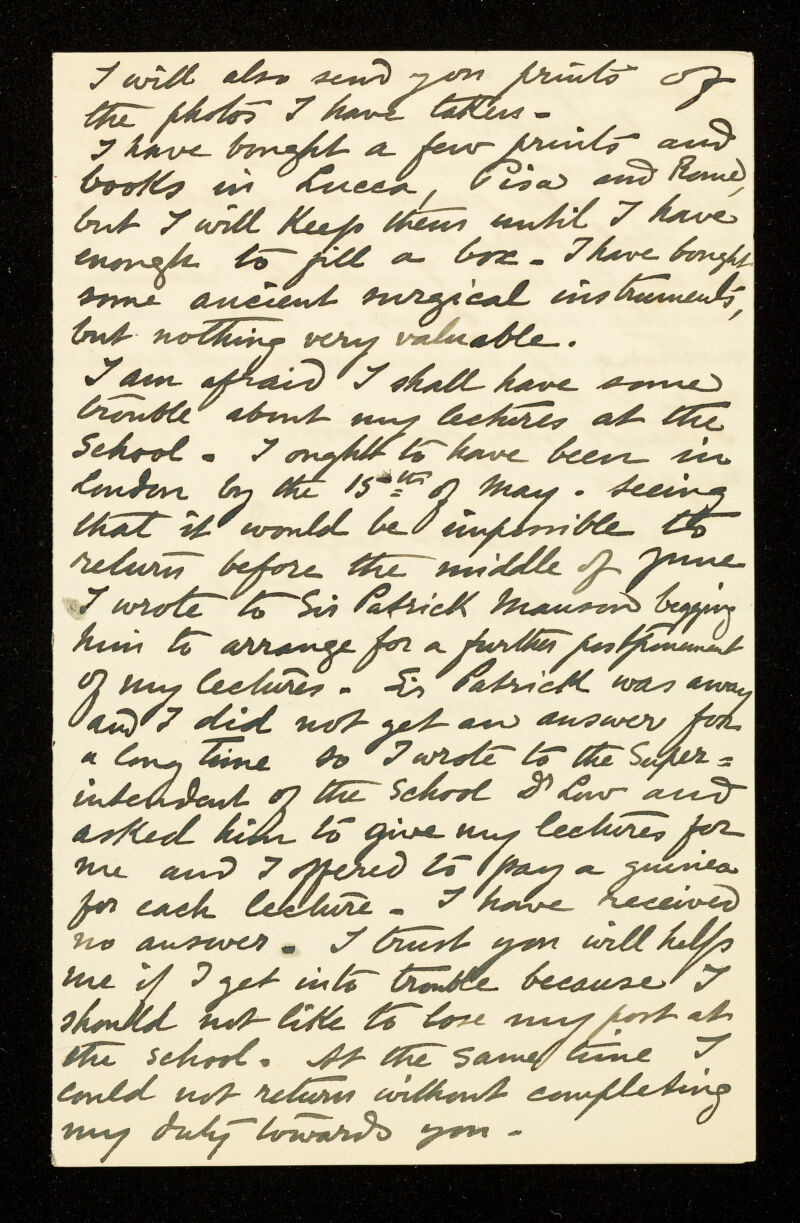 I will also send you prints of
the photos I have taken -
I have bought a few prints and
books in Lucca, Pisa and Rome,
but I will keep them until I have
enough to fill a box - I have bought
some ancient surgical instruments,
but nothing very valuable.
I am afraid I shall have some
trouble about my lectures at the
School - I ought to have been in
London by the 15th of May. seeing
that it would be impossible to
return before the middle of June
I wrote to Sir Patrick Manson begging
him to arrange for a further postponement
of my lectures - Sir Patrick was away
and I did not get an answer for
a long time so I wrote to the Super=
intendent of the School Dr Low and
asked him to give my lectures for
me and I offered to pay a guinea
for each lecture - I have received
no answer. I trust you will help
me if I get into trouble because I
should not like to lose my post at
the school. At the same time I
could not return without completing
my duty towards you -